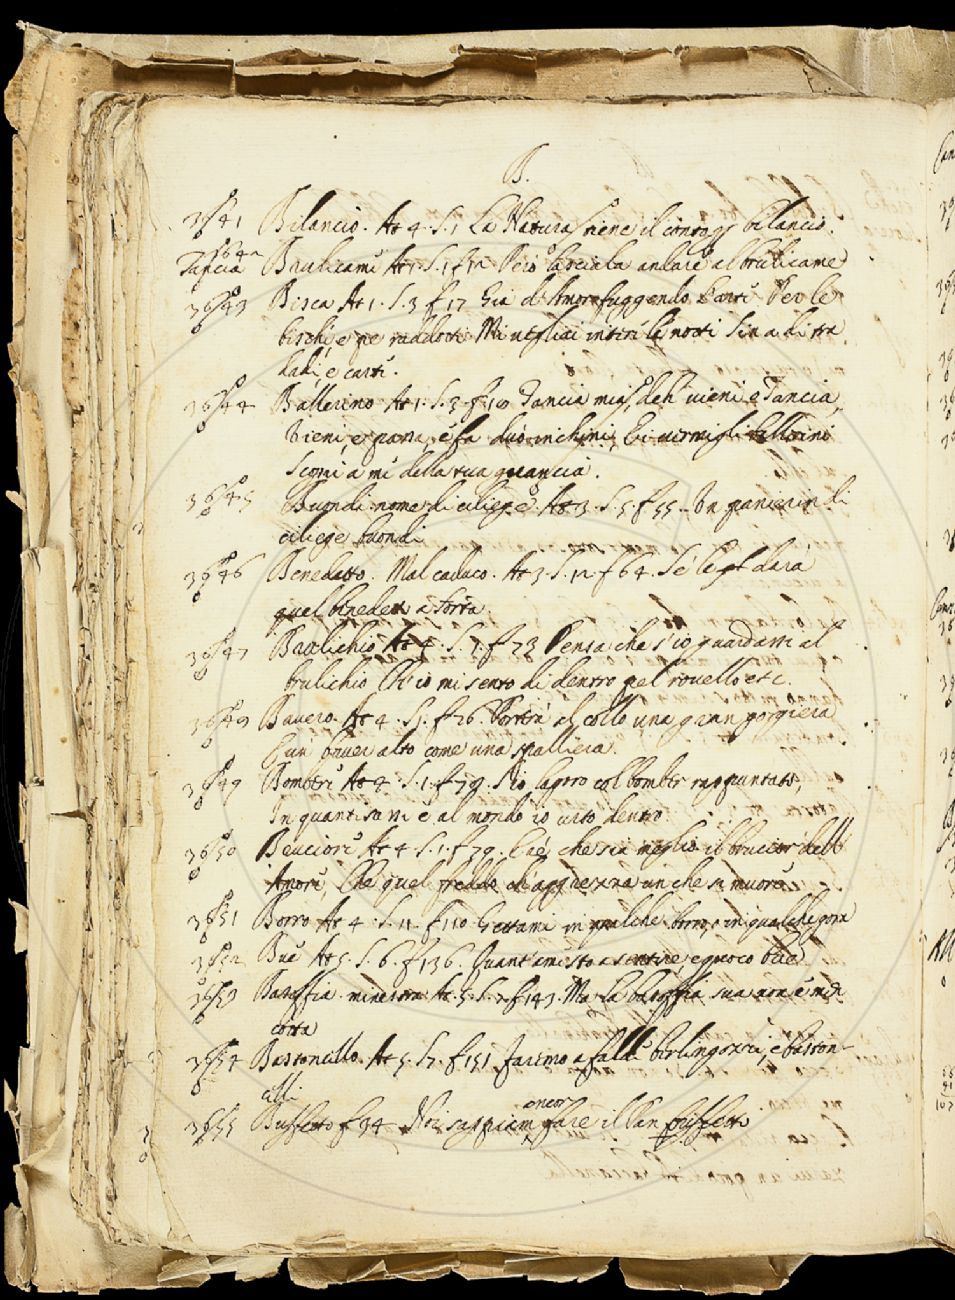 B.
36541 Bilancio. At 4. S. 1 La Natura tiene il conto e'l bilancio.
Tancia Brulicame At 5. S. 1 f Però lasciala andare al brulicame
36543 Bisca At 1. S. 3 f 17 Già d'Amor fuggendo l'arti Per le
bische, e pe' raddotti Mi vegliai intere le notti Sin a di tra
dadi, e carte.
36544 Ballerino At 1. S. 3 f Tancia mia, deh vieni o Tancia,
Vieni, e parla, e fa duo inchini, E i vermigli ballerini
Scorri a me della tua guancia.
36545 Buondi nome di ciliege. At 3. S. 5 f 55. Un panierin di
ciliege buondi
36546 Benedetto. Mal caduco. At 3. S. 12 f 64. Se le darà
quel benedetto a sorta.
36547 Brulichio At 4. S. 1. f 73 Pensa che s'io guardassi al
brulichio Ch'io mi sento di dentro pel rovello etc.
Bavero. At 4. S. 1. f 76. Porterà al collo una gran gorgiera
E un baver alto come una spalliera.
36549 Bomberi At 4. S. 1. f 79. S'io lavoro col bomber rappuntato,
In quanti sassi è al mondo io urto dentro
36550 Bruciori At 4. S. 1. f 79. E è che sia meglio il bruciore dell'
Amore, Che quel freddo ch'aggiezza un che si muore
36551 Borro At 4. S. 11. f 110 Gettami in qualche borro, o in qualche gora
3652 Bue At 5. S. 6. f 136. Quant'
36553 Basoffia minestra At 5. S. 7 f 143. Ma la basoffia sua non è min
cotta
36554 Bastoncello. At 5. S. 7. f 151 Faremo a falli berlingozzi, e baston-
celli
36555 Buffetto f 34 Noi sappiam ancor fare il Pan buffetto